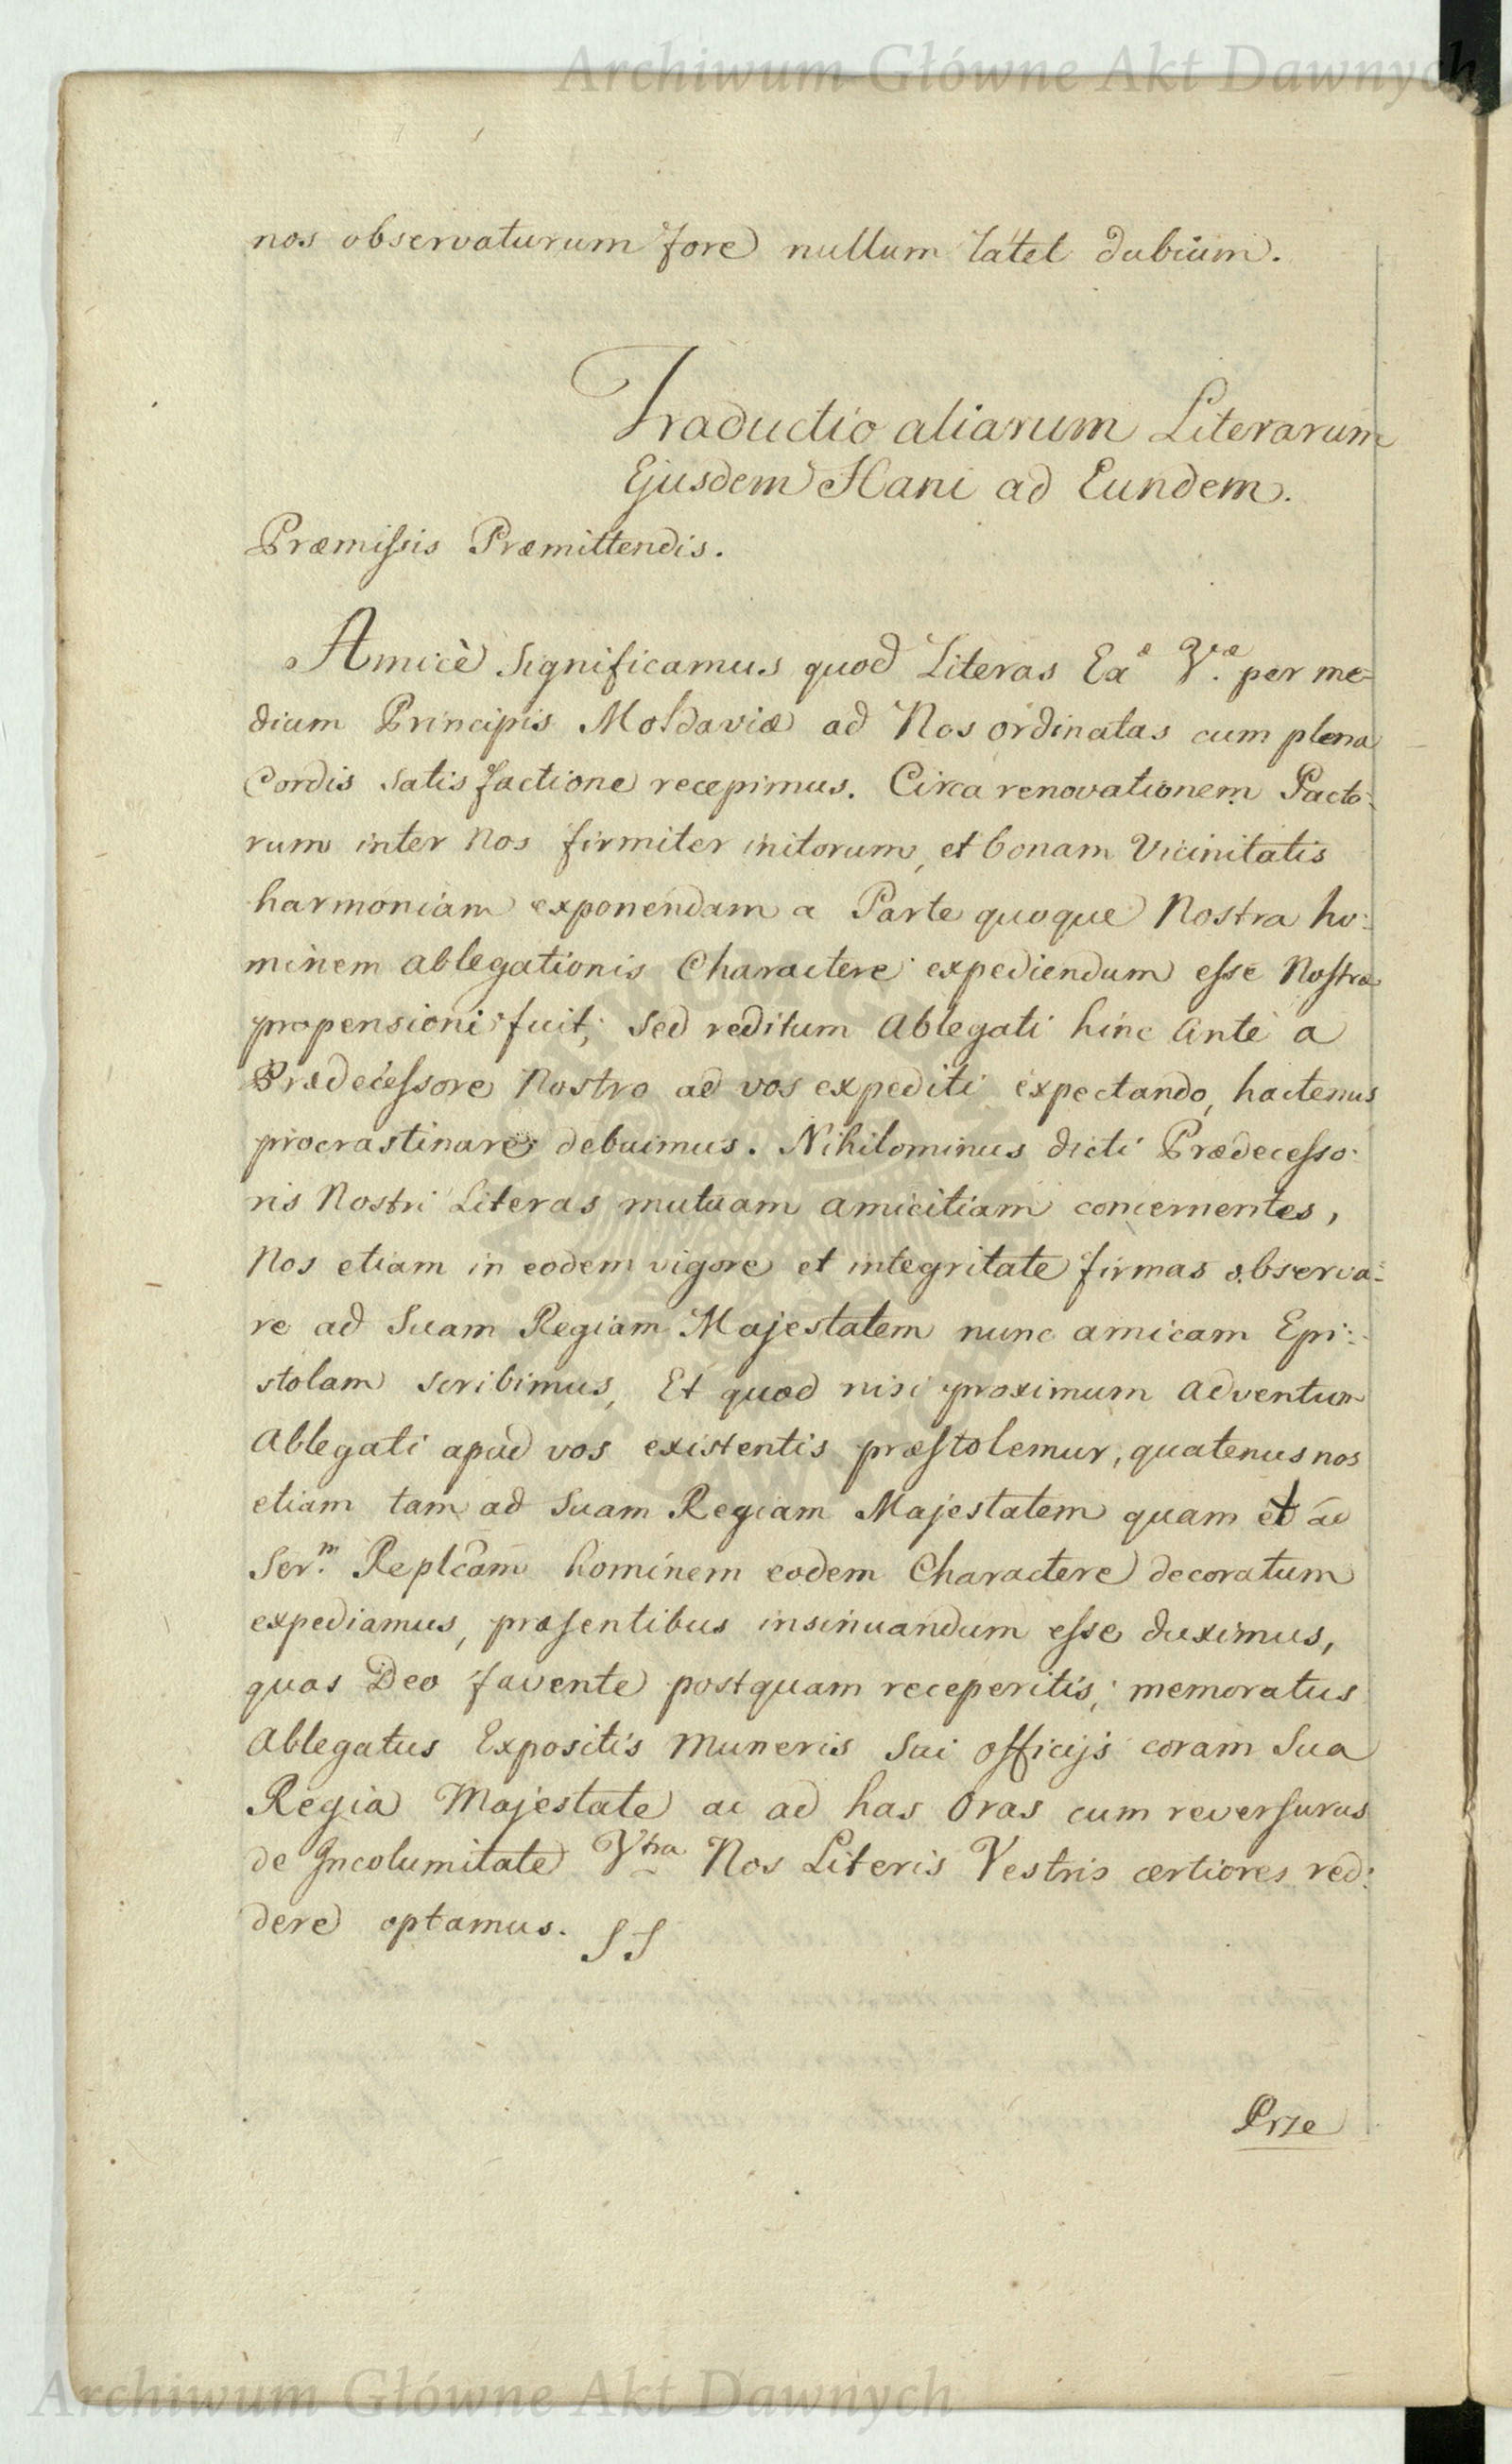 Archiwum Główne Akt Dawnych
nos observaturum fore nullum latet dubium.
Traductio aliarum Literarum
Ejusdem Hani ad Eundem.
Præmissis Præmittendis.
Amicè significamus quod Literas Exæ Vræ per me=
dium Principis Moldaviæ ad Nos ordinatas cum plena
Cordis satisfactione recepimus. Circa renovationem Pacto:
rum inter nos firmiter initorum, et bonam Vicinitatis
harmoniam exponendam a Parte quoque Nostra ho:
minem ablegationis Charactere expediendum esse Nostræ
propensioni fuit, sed reditum Ablegati hinc Ante a
Prædecessore Nostro ad vos expediti expectando, hactenus
procrastinare debuimus. Nihilominus dicti Prædecesso:
ris Nostri Literas mutuam amicitiam concernentes,
Nos etiam in eodem vigore et integritate firmas observa:
re ad Suam Regiam Majestatem nunc amicam Epi:
stolam scribimus, Et quod nisi proximum adventum
Ablegati apud vos existentis præstolemur, quatenus nos
etiam tam ad Suam Regiam Majestatem quam et ac
Ser.m Replcam hominem eodem Charactere decoratum
expediamus, præsentibus insinuandum esse duximus,
quas Deo favente postquam receperitis, memoratus
Ablegatus Expositis Muneris Sui officijs coram Sua
Regia Majestate ac ad has Oras cum reversurus
de Incolumitate Vtra Nos Literis Vestris certiores red:
dere optamus. SS
Prze
Archiwum Główne Akt Dawnych